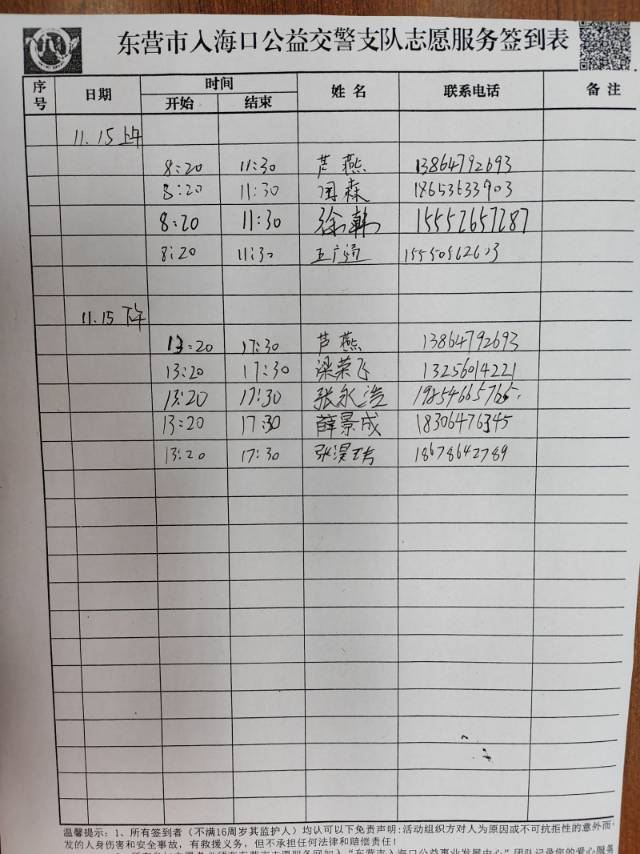 东营市入海口公益交警支队志愿服务签到表
序号 日期 时间 姓名 联系电话 备注
开始 结束
11.15上午
8:20 11:30 芦燕 13864792693
8:20 11:30 周森 18653633903
8:20 11:30 徐韩 15552657287
8:20 11:30 15550562603
11.15下午
13:20 17:30 芦燕 13864792693
13:20 17:30 梁荣飞 13256014221
13:20 17:30 张永浩 19854665765
13:20 17:30 薛景成 18306476345
13:20 17:30 18678642789
温馨提示:1、所有签到者(不满16周岁其监护人)均认可以下免责声明:活动组织方对人为原因或不可抗拒性的意外而
发的人身伤害和安全事故,有救援义务,但不承担任何法律和赔偿责任!